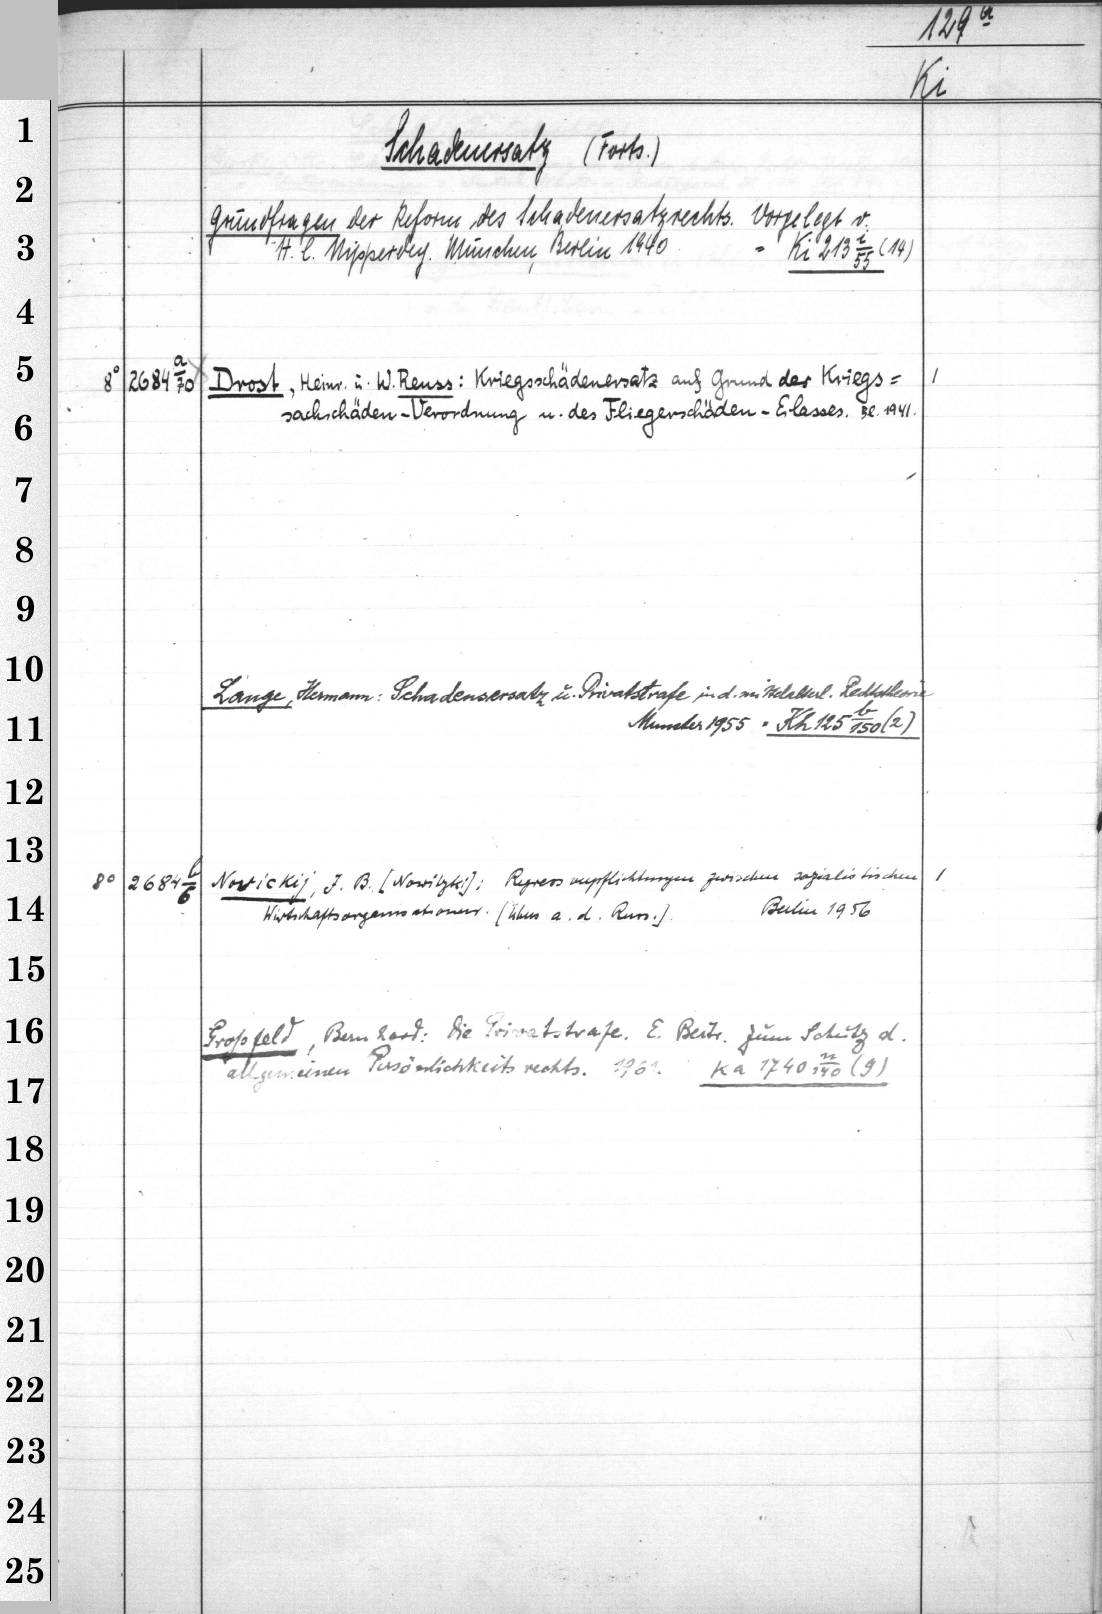 129 a
Ki
1
Schadenersatz (Forts.)
2
Grundfragen der Reform des Schadenersatzrechts. Vorgelegt v.
3
H. C. Nipperdey. München, Berlin 1940 = Ki 213 i/55 (14)
4
5
8° 2684 a/70 Drost, Heinr. u. W. Reuss: Kriegsschädenersatz auf Grund der Kriegs= 1
sachschäden-Verordnung u. des Fliegerschäden-Erlasses. Bl. 1941.
6
7
8
9
10
Lange, Hermann: Schadensersatz u. Privatstrafe in d. mittelalterl. Rechtstheorie
11
Münster 1955 = Kh 125 b/150 (2)
12
13
8° 2684 b/6 Nowickij, J. B. [Nowitzki]: Regressverpflichtungen zwischen sozialistischen 1
14
Wirtschaftsorganisationen. [Übers. a. d. Russ.]. Berlin 1956
15
16
Großfeld, Bernhard: Die Privatstrafe. E. Beitr. zum Schutz d.
allgemeinen Persönlichkeitsrechts. 1961. Ka 1740 n/140 (9)
17
18
19
20
21
22
23
24
25